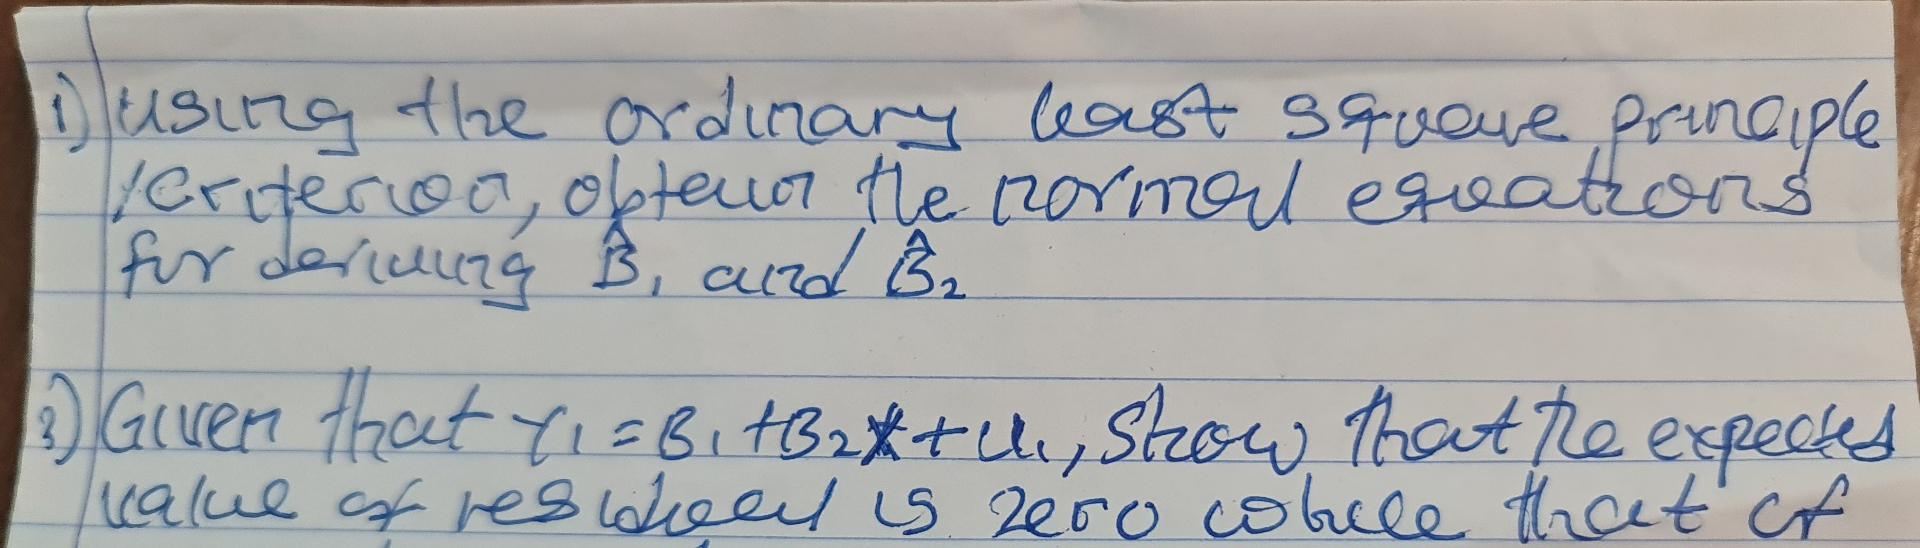 1) using the ordinary least square principle
/criterion, obtain the normal equations
for deriving B̂₁ and B̂₂
3) Given that Y₁ = B₁ + B₂X + U₁, show that the expected
value of residual is zero while that of